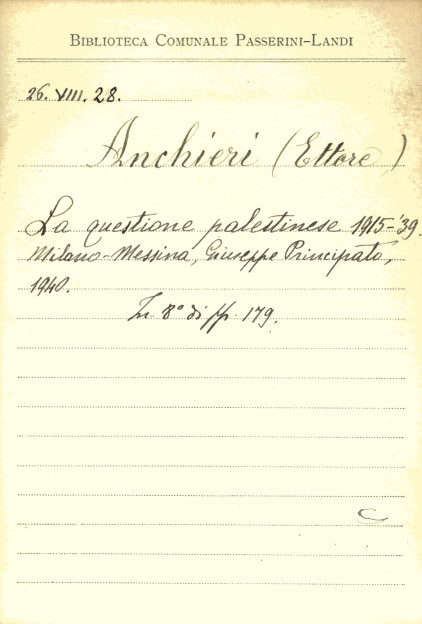 BIBLIOTECA COMUNALE PASSERINI-LANDI
26. VIII. 28.
Anchieri (Ettore)
La questione palestinese 1915-'39.
Milano-Messina, Giuseppe Principato,
1940.
In 8° di pp. 179.